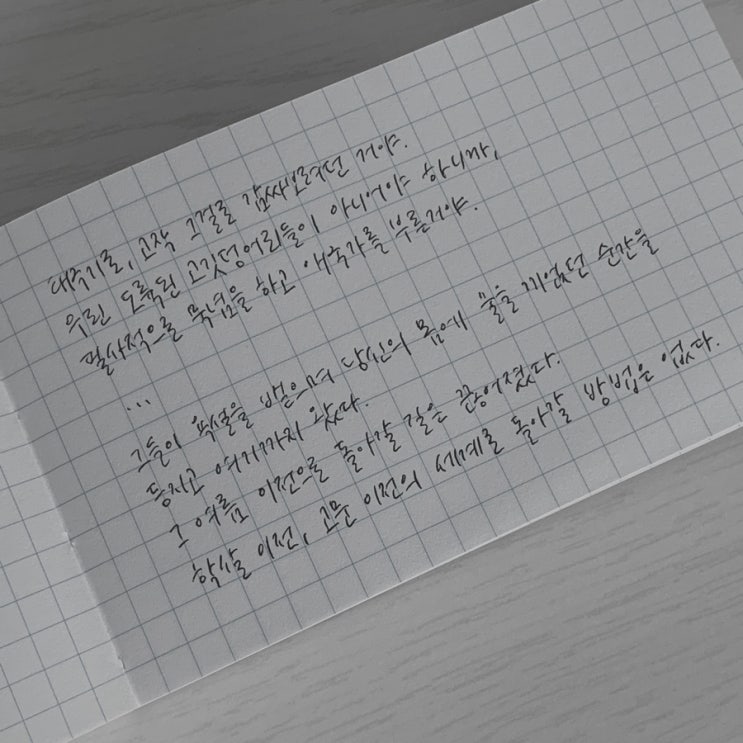 태극기로, 고작 그걸로 감싸보려던 거야.
우린 도륙된 고깃덩어리들이 아니어야 하니까,
필사적으로 묵념을 하고 애국가를 부른거야.
...
그들이 욕설을 뱉으며 당신의 몸에 물을 끼얹던 순간을
등지고 여기까지 왔다.
그 여름 이전으로 돌아갈 길은 끊어졌다.
학살 이전, 고문 이전의 세계로 돌아갈 방법은 없다.